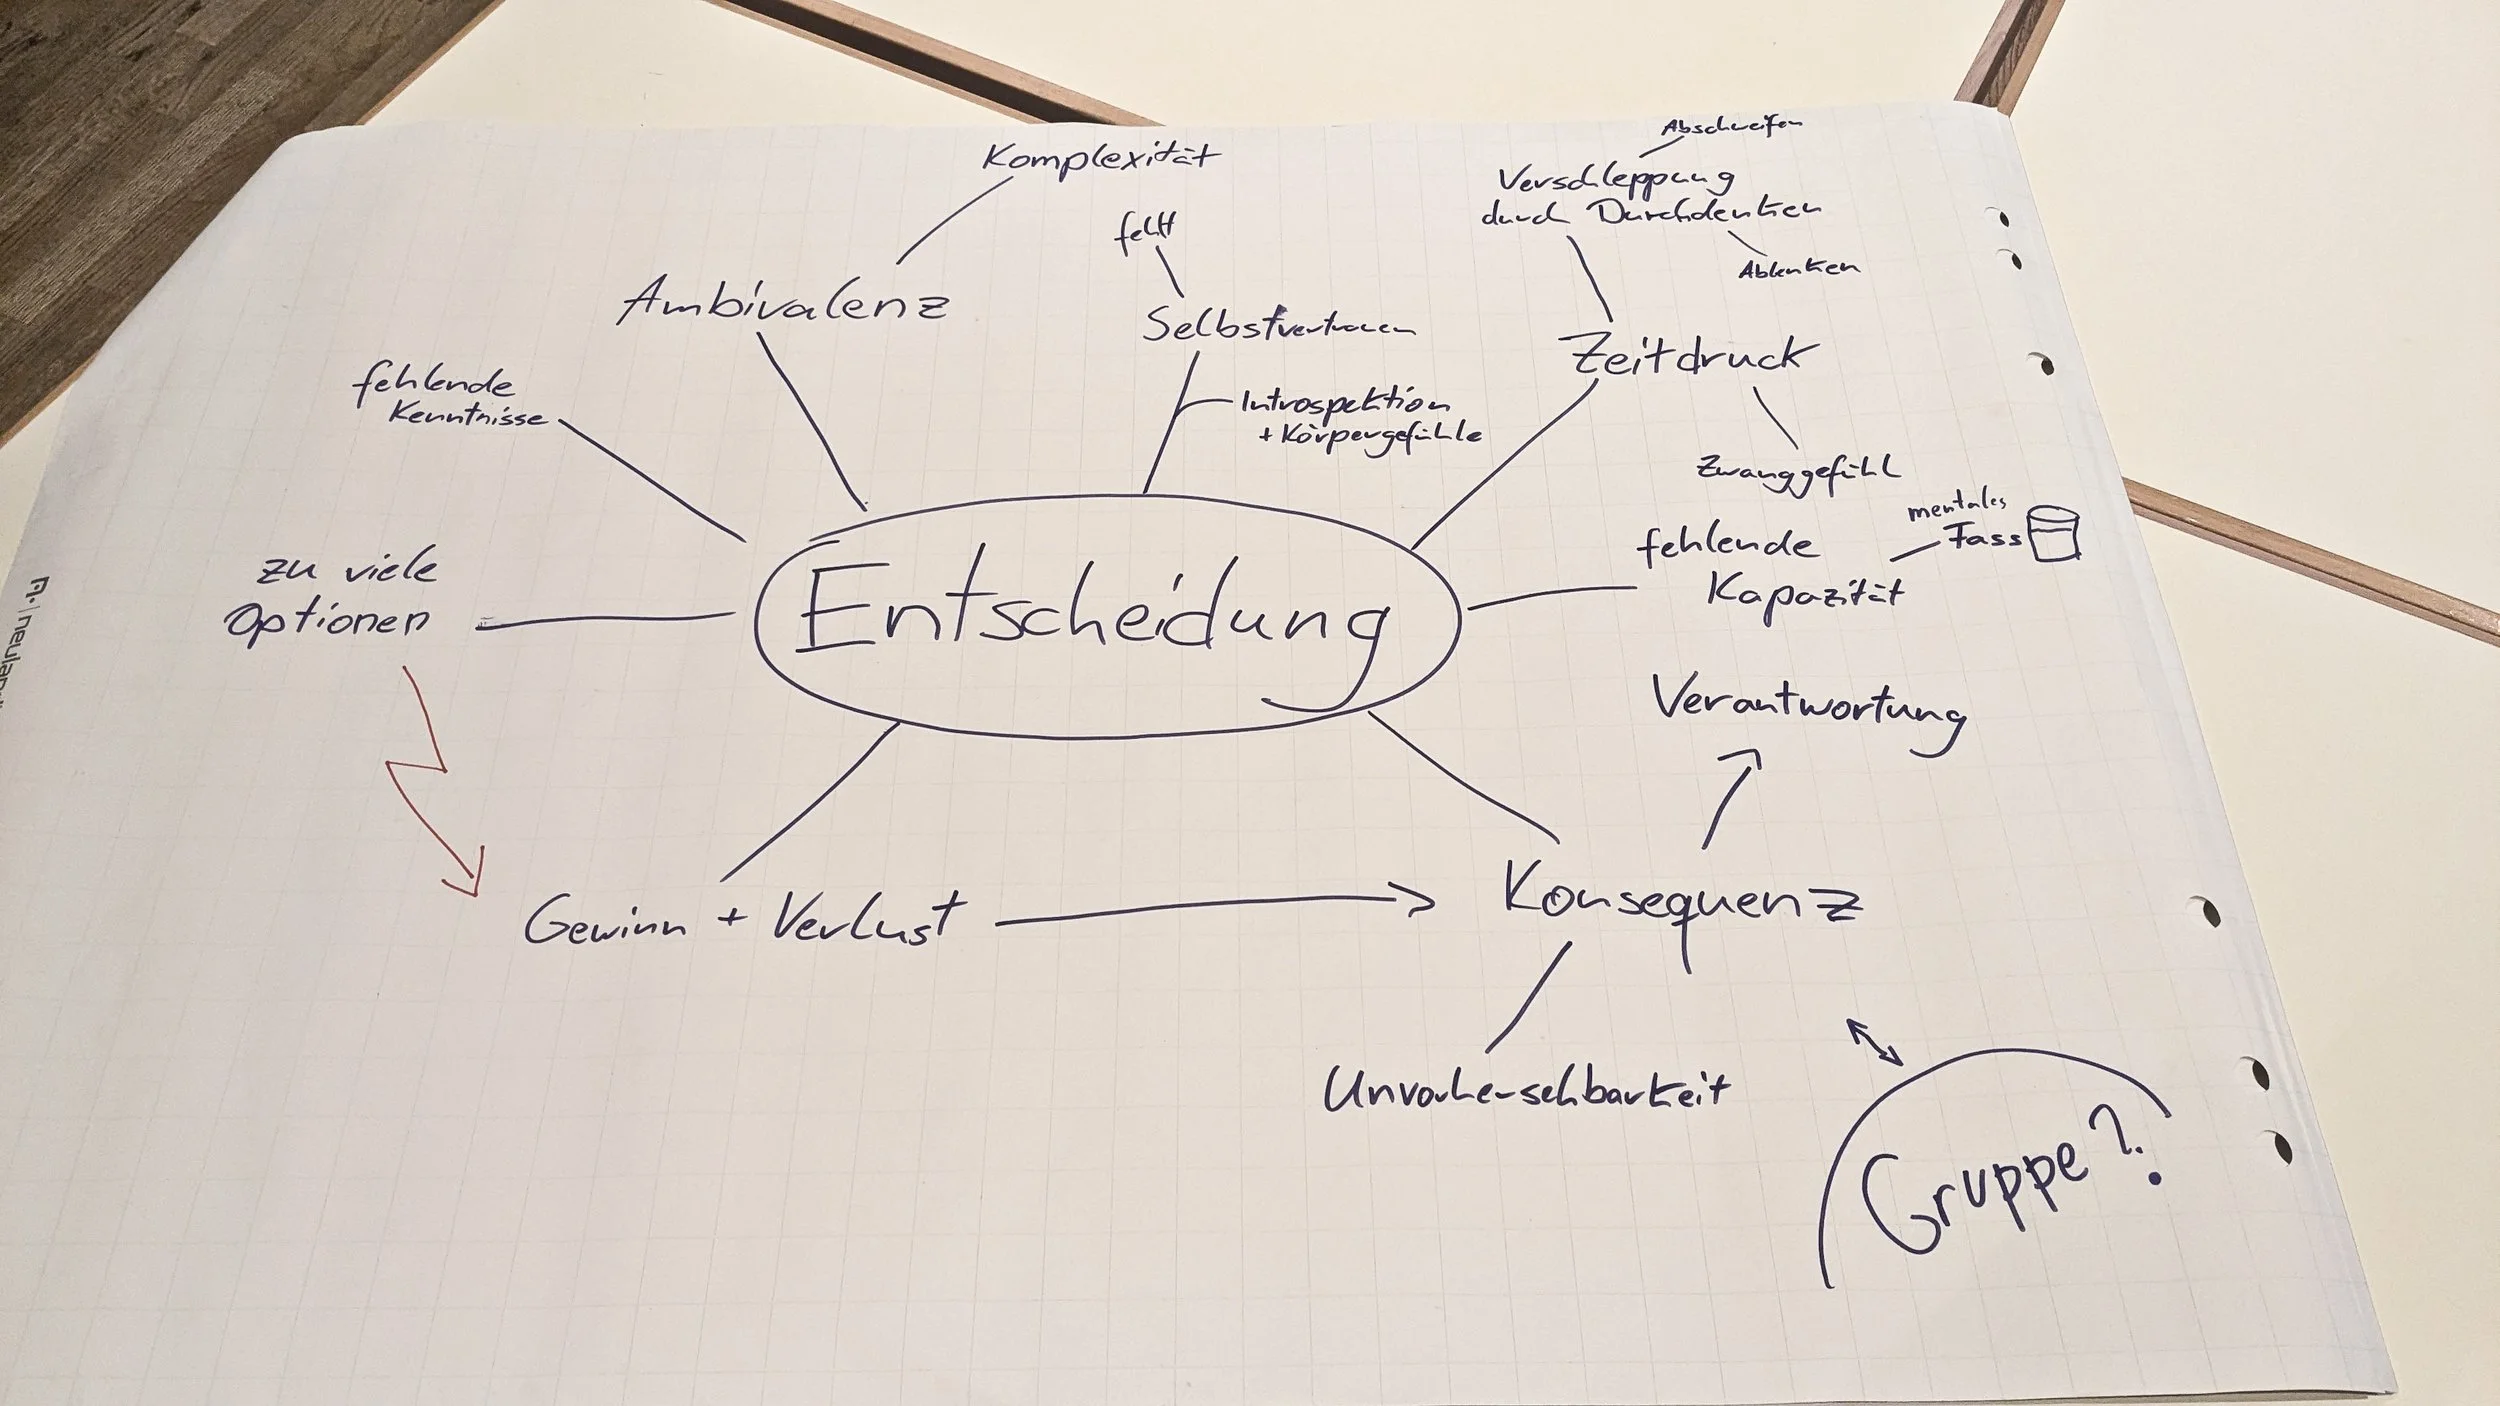 Komplexität
Abschweifen
Verschleppung
durch Durchdenken
Ablenken
fehlt
Ambivalenz
Selbstvertrauen
Zeitdruck
fehlende
Kenntnisse
Introspektion
+ Körpergefühle
Zwanggefühl
mentales
Fass
fehlende
Kapazität
zu viele
Optionen
Entscheidung
Verantwortung
Gewinn + Verlust
Konsequenz
Unvorhersehbarkeit
Gruppe?